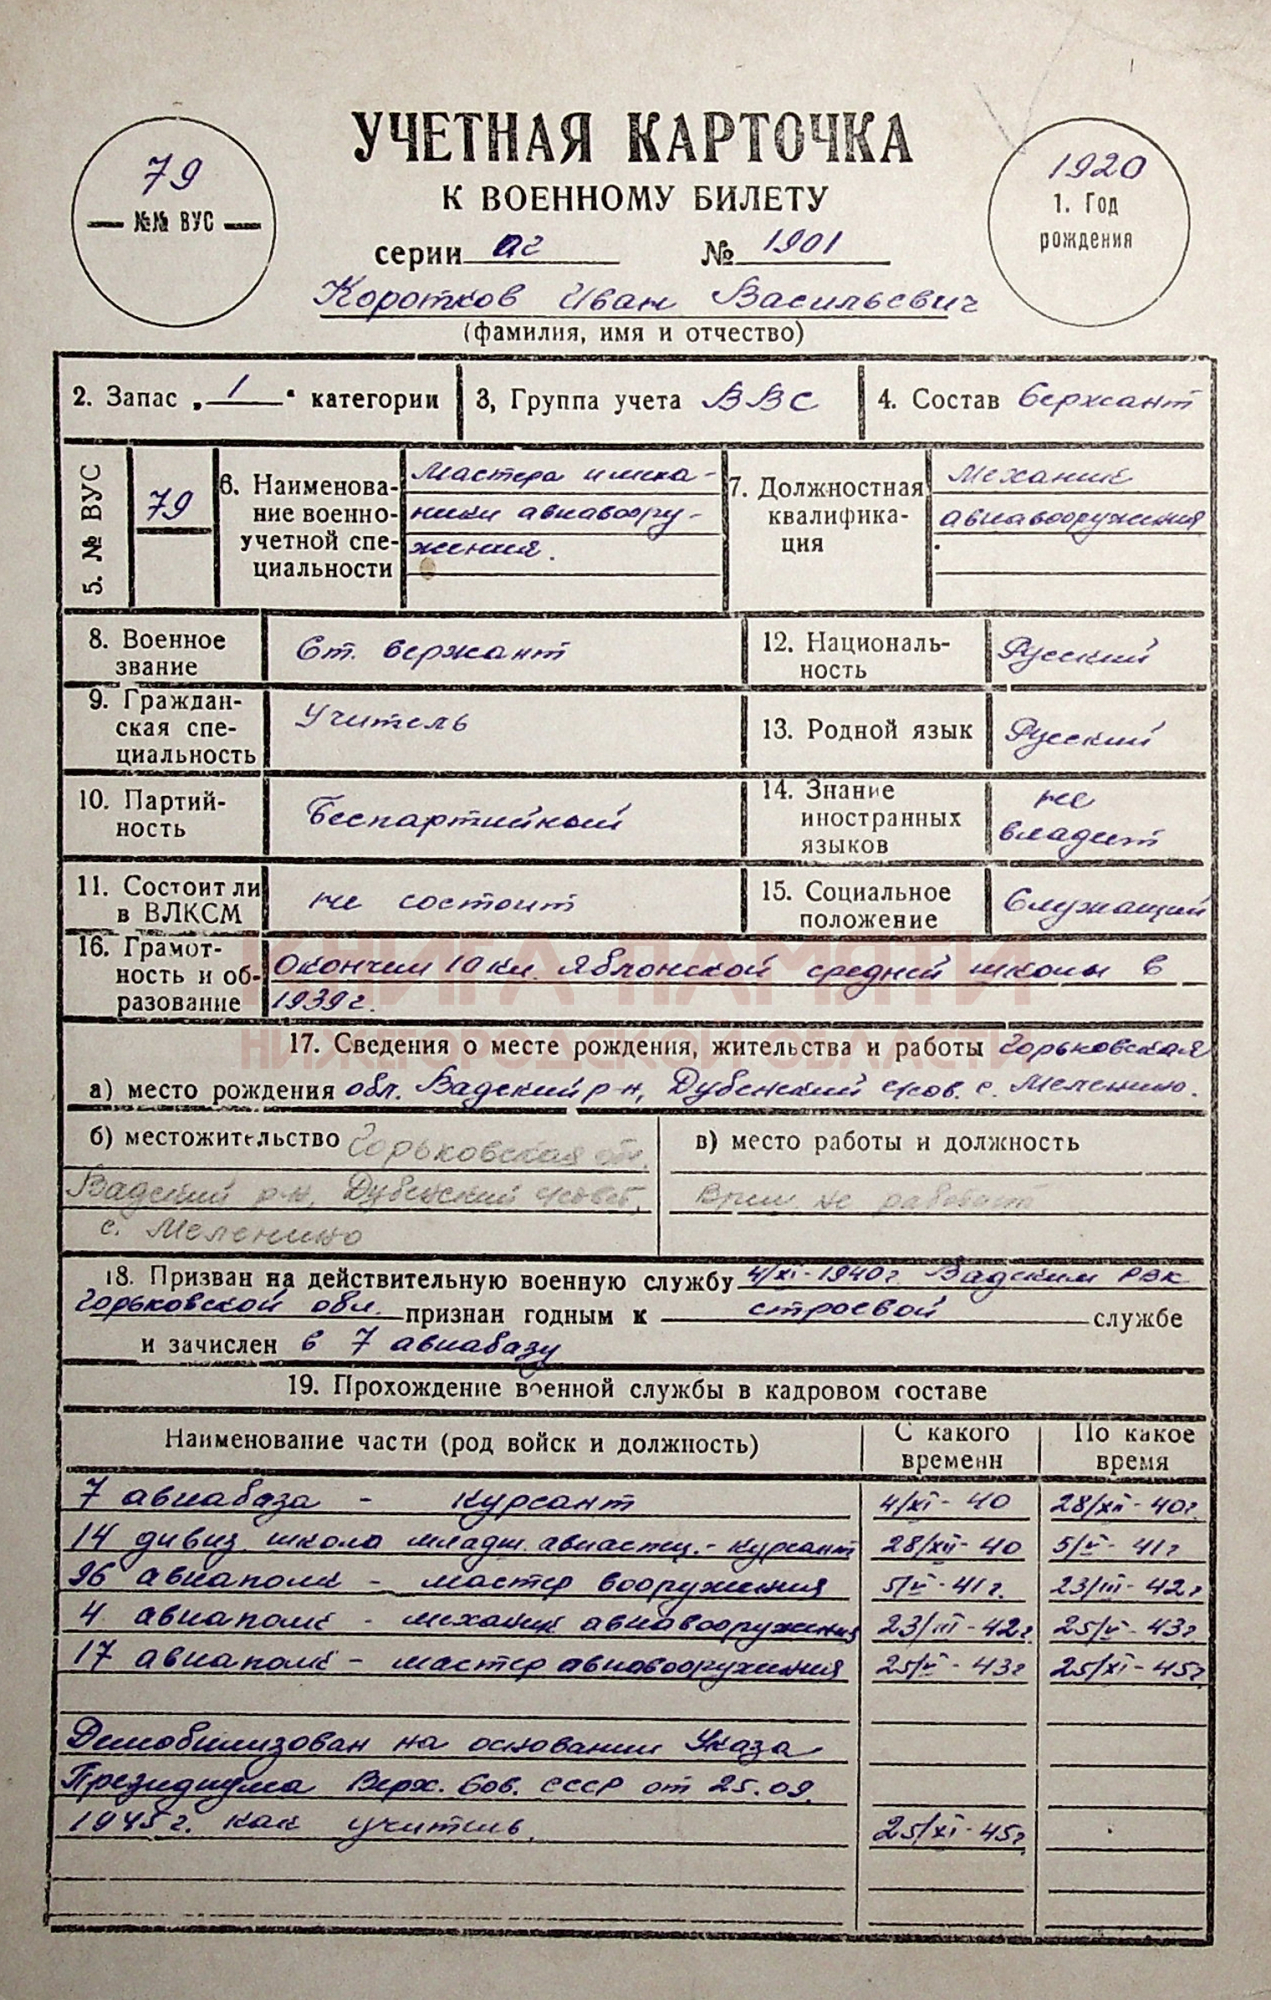 УЧЕТНАЯ КАРТОЧКА
К ВОЕННОМУ БИЛЕТУ
79
№№ ВУС
1920
1. Год
рождения
серии аг № 1901
Коротков Иван Васильевич
(фамилия, имя и отчество)
2. Запас „1“ категории
3, Группа учета ВВС
4. Состав Сержсант
5. № ВУС
79
6. Наименова-
ние военно-
учетной спе-
циальности
Мастера и меха-
ники авиавоору-
жения.
7. Должностная
квалифика-
ция
Механик
авиавооружения
8. Военное
звание
Ст. сержант
12. Националь-
ность
Русский
9. Граждан-
ская спе-
циальность
Учитель
13. Родной язык
Русский
10. Партий-
ность
Беспартийный
14. Знание
иностранных
языков
не
владеет
11. Состоит ли
в ВЛКСМ
не состоит
15. Социальное
положение
Служащий
16. Грамот-
ность и об-
разование
Окончил 10 кл. Яблонской средней школы в
1939 г.
КНИГА ПАМЯТИ
НИЖЕГОРОДСКОЙ ОБЛАСТИ
17. Сведения о месте рождения, жительства и работы Горьковская
а) место рождения обл. Вадский р-н, Дубенский с/сов. с. Меленино.
б) местожительство Горьковская об.
Вадский р-н, Дубенский с/совет,
с. Меленино
в) место работы и должность
Врем. не работает
18. Призван на действительную военную службу 4/XI-1940 г. Вадским РВК
Горьковской обл. признан годным к строевой службе
и зачислен в 7 авиабазу
19. Прохождение военной службы в кадровом составе
Наименование части (род войск и должность)
С какого
времени
По какое
время
7 авиабаза - курсант 4/XI-40 28/XII-40г.
14 дивиз. школа младш. авиаспец. - курсант 28/XII-40 5/V-41г
96 авиаполк - мастер вооружения 5/V-41г. 23/III-42г
4 авиаполк - механик авиавооружения 23/III-42г. 25/V-43г
17 авиаполк - мастер авиавооружения 25/V-43г 25/XI-45г.
Демобилизован на основании Указа
Президиума Верх. Сов. СССР от 25.09.
1945г. как учитель. 25/XI-45г.